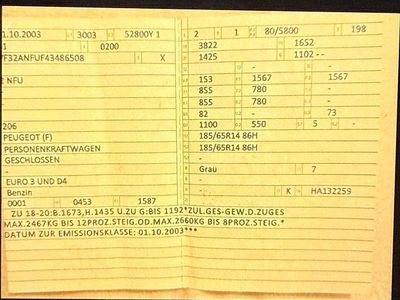 01.10.2003 3003 52800Y 1
0200
VF32ANFUF43486508 X
2 NFU
206
PEUGEOT (F)
PERSONENKRAFTWAGEN
GESCHLOSSEN
-
EURO 3 UND D4
Benzin
0001 0453 1587
2 1 80/5800 198
3822 1652
1425 1102 --
- -
153 1567 1567
855 780 -
855 780 -
82 - 73
1100 550 5 -
185/65R14 86H
185/65R14 86H
-
Grau 7
-
K HA132259
ZU 18-20:B.1673,H.1435 U.ZU G:BIS 1192*ZUL.GES-GEW.D.ZUGES
MAX.2467KG BIS 12PROZ.STEIG.OD.MAX.2660KG BIS 8PROZ.STEIG.*
DATUM ZUR EMISSIONSKLASSE; 01.10.2003***